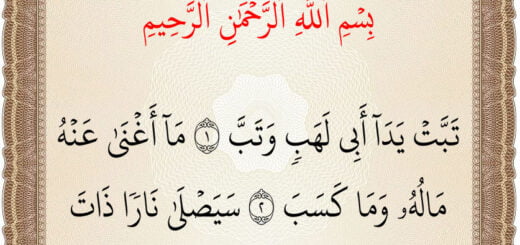 بِسْمِ اللَّهِ الرَّحْمَٰنِ الرَّحِيمِ
تَبَّتْ يَدَآ أَبِى لَهَبٍ وَتَبَّ ١ مَآ أَغْنَىٰ عَنْهُ
مَالُهُۥ وَمَا كَسَبَ ٢ سَيَصْلَىٰ نَارًا ذَاتَ